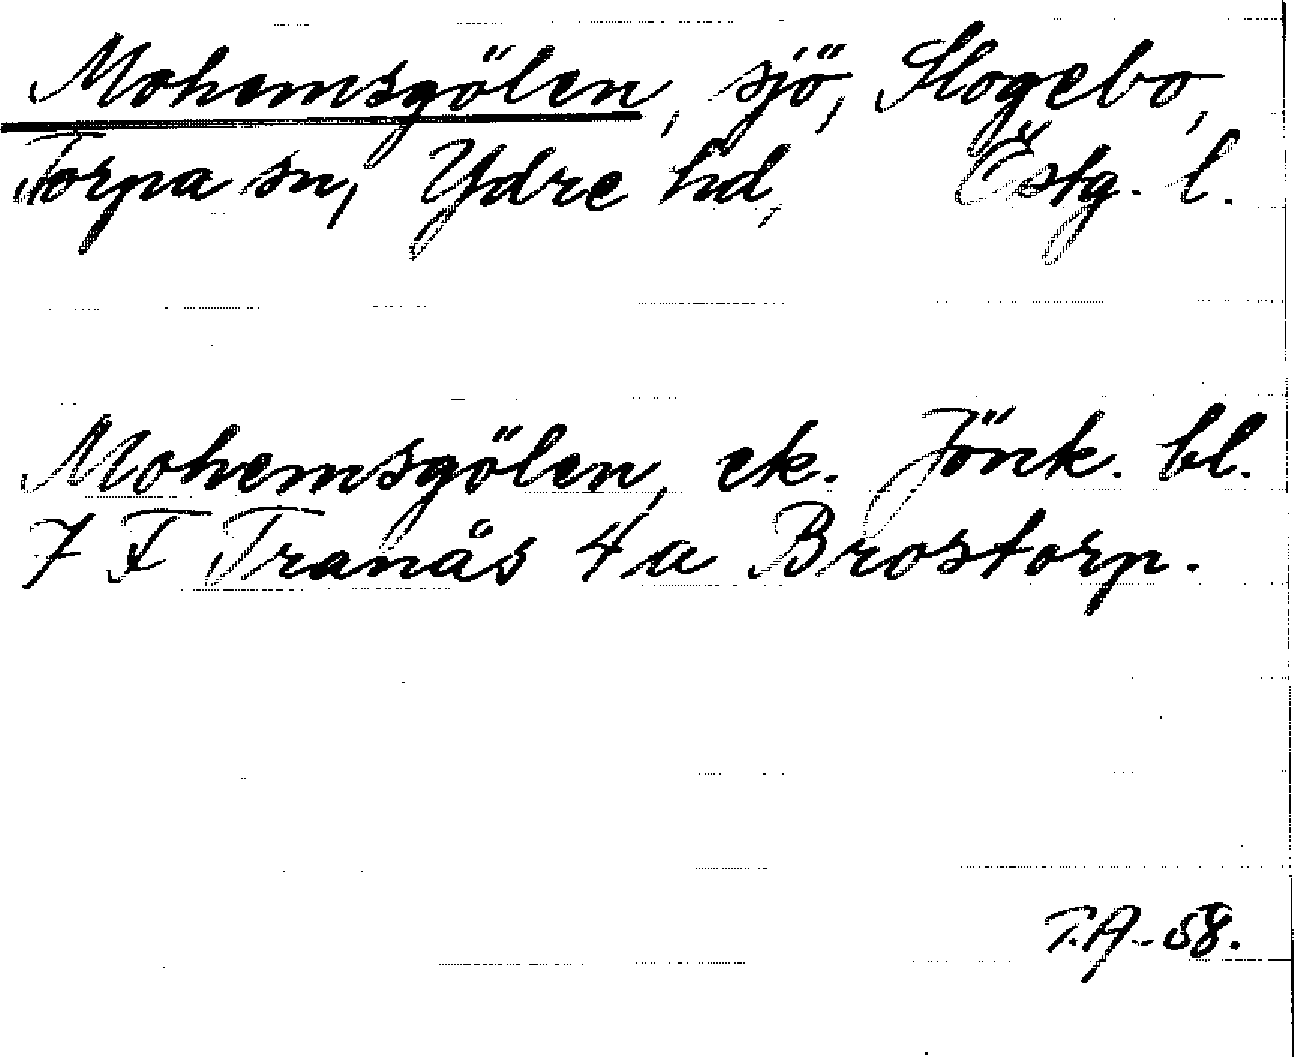 Mohemsgölen, sjö, Slogebo,
Torpa sn, Ydre hd, Östg. l.
Mohemsgölen, ek. Jönk. bl.
7 F Tranås 4 a Brostorp.
T.A. 58.